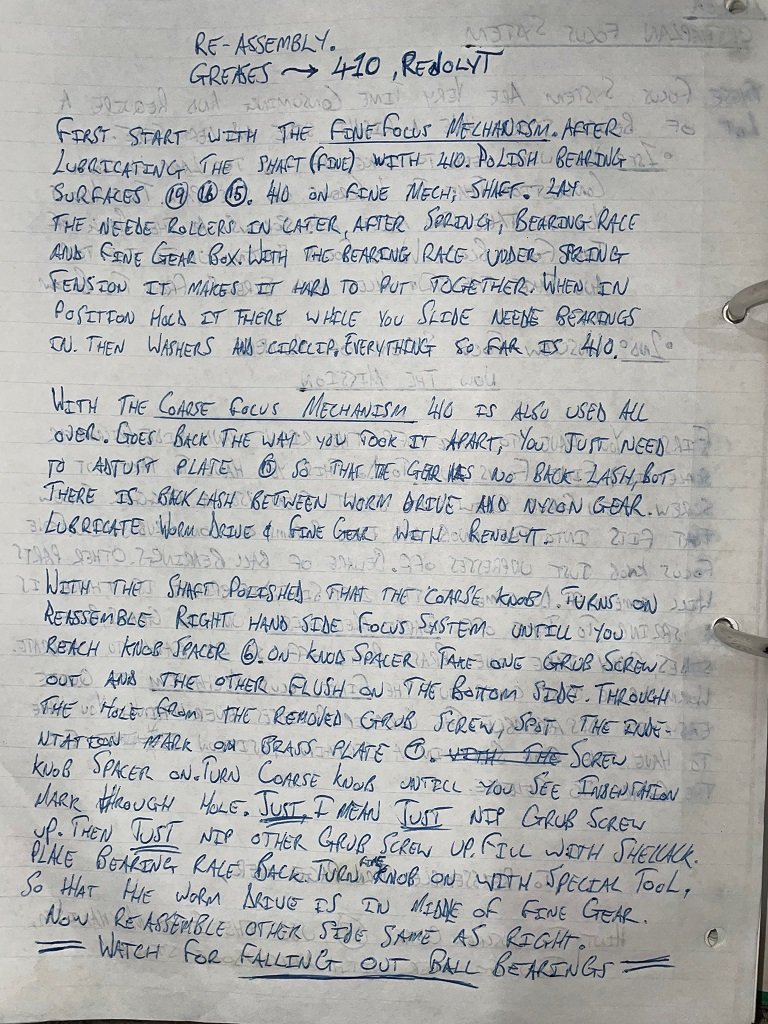 RE-ASSEMBLY.
GREASES → 410, RENOLYT
FIRST START WITH THE FINE FOCUS MECHANISM. AFTER
LUBRICATING THE SHAFT (FINE) WITH 410. POLISH BEARING
SURFACES ⑲ ⑯ ⑮. 410 ON FINE MECH; SHAFT. LAY
THE NEEDE ROLLERS IN LATER, AFTER SPRING, BEARING RACE
AND FINE GEAR BOX. WITH THE BEARING RACE UNDER SPRING
TENSION IT MAKES IT HARD TO PUT TOGETHER. WHEN IN
POSITION HOLD IT THERE WHILE YOU SLIDE NEEDE BEARINGS
IN. THEN WASHERS AND CIRCLIP. EVERYTHING SO FAR IS 410.
WITH THE COARSE FOCUS MECHANISM 410 IS ALSO USED ALL
OVER. GOES BACK THE WAY YOU TOOK IT APART, YOU JUST NEED
TO ADJUST PLATE SO THAT THE GEAR HAS NO BACK LASH, BUT
THERE IS BACKLASH BETWEEN WORM DRIVE AND NYLON GEAR.
LUBRICATE WORM DRIVE & FINE GEAR WITH RENOLYT.
WITH THE SHAFT POLISHED THAT THE COARSE KNOB TURNS ON
REASSEMBLE RIGHT HAND SIDE FOCUS SYSTEM UNTILL YOU
REACH KNOB SPACER ⑥. ON KNOB SPACER TAKE ONE GRUB SCREW
OUT AND THE OTHER FLUSH ON THE BOTTOM SIDE. THROUGH
THE HOLE FROM THE REMOVED GRUB SCREW, SPOT THE INDE-
NTATION MARK ON BRASS PLATE ⑦. WITH THE SCREW
KNOB SPACER ON. TURN COARSE KNOB UNTILL YOU SEE INDENTATION
MARK THROUGH HOLE. JUST, I MEAN JUST NIP GRUB SCREW
UP. THEN JUST NIP OTHER GRUB SCREW UP. FILL WITH SHELLACK.
PLACE BEARING RACE BACK. TURN FINE KNOB ON WITH SPECIAL TOOL,
SO THAT THE WORM DRIVE IS IN MIDDLE OF FINE GEAR.
NOW RE ASSEMBLE OTHER SIDE SAME AS RIGHT.
WATCH FOR FALLING OUT BALL BEARINGS